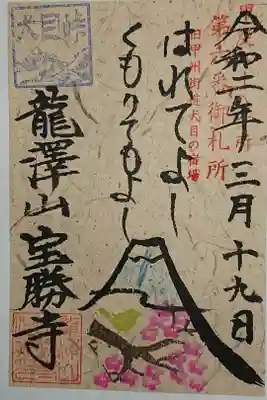 令和二年三月十九日
番御札所
旧甲州街道犬目の宿場
はれてよし
くもりてもよし
犬目峠
龍澤山宝勝寺